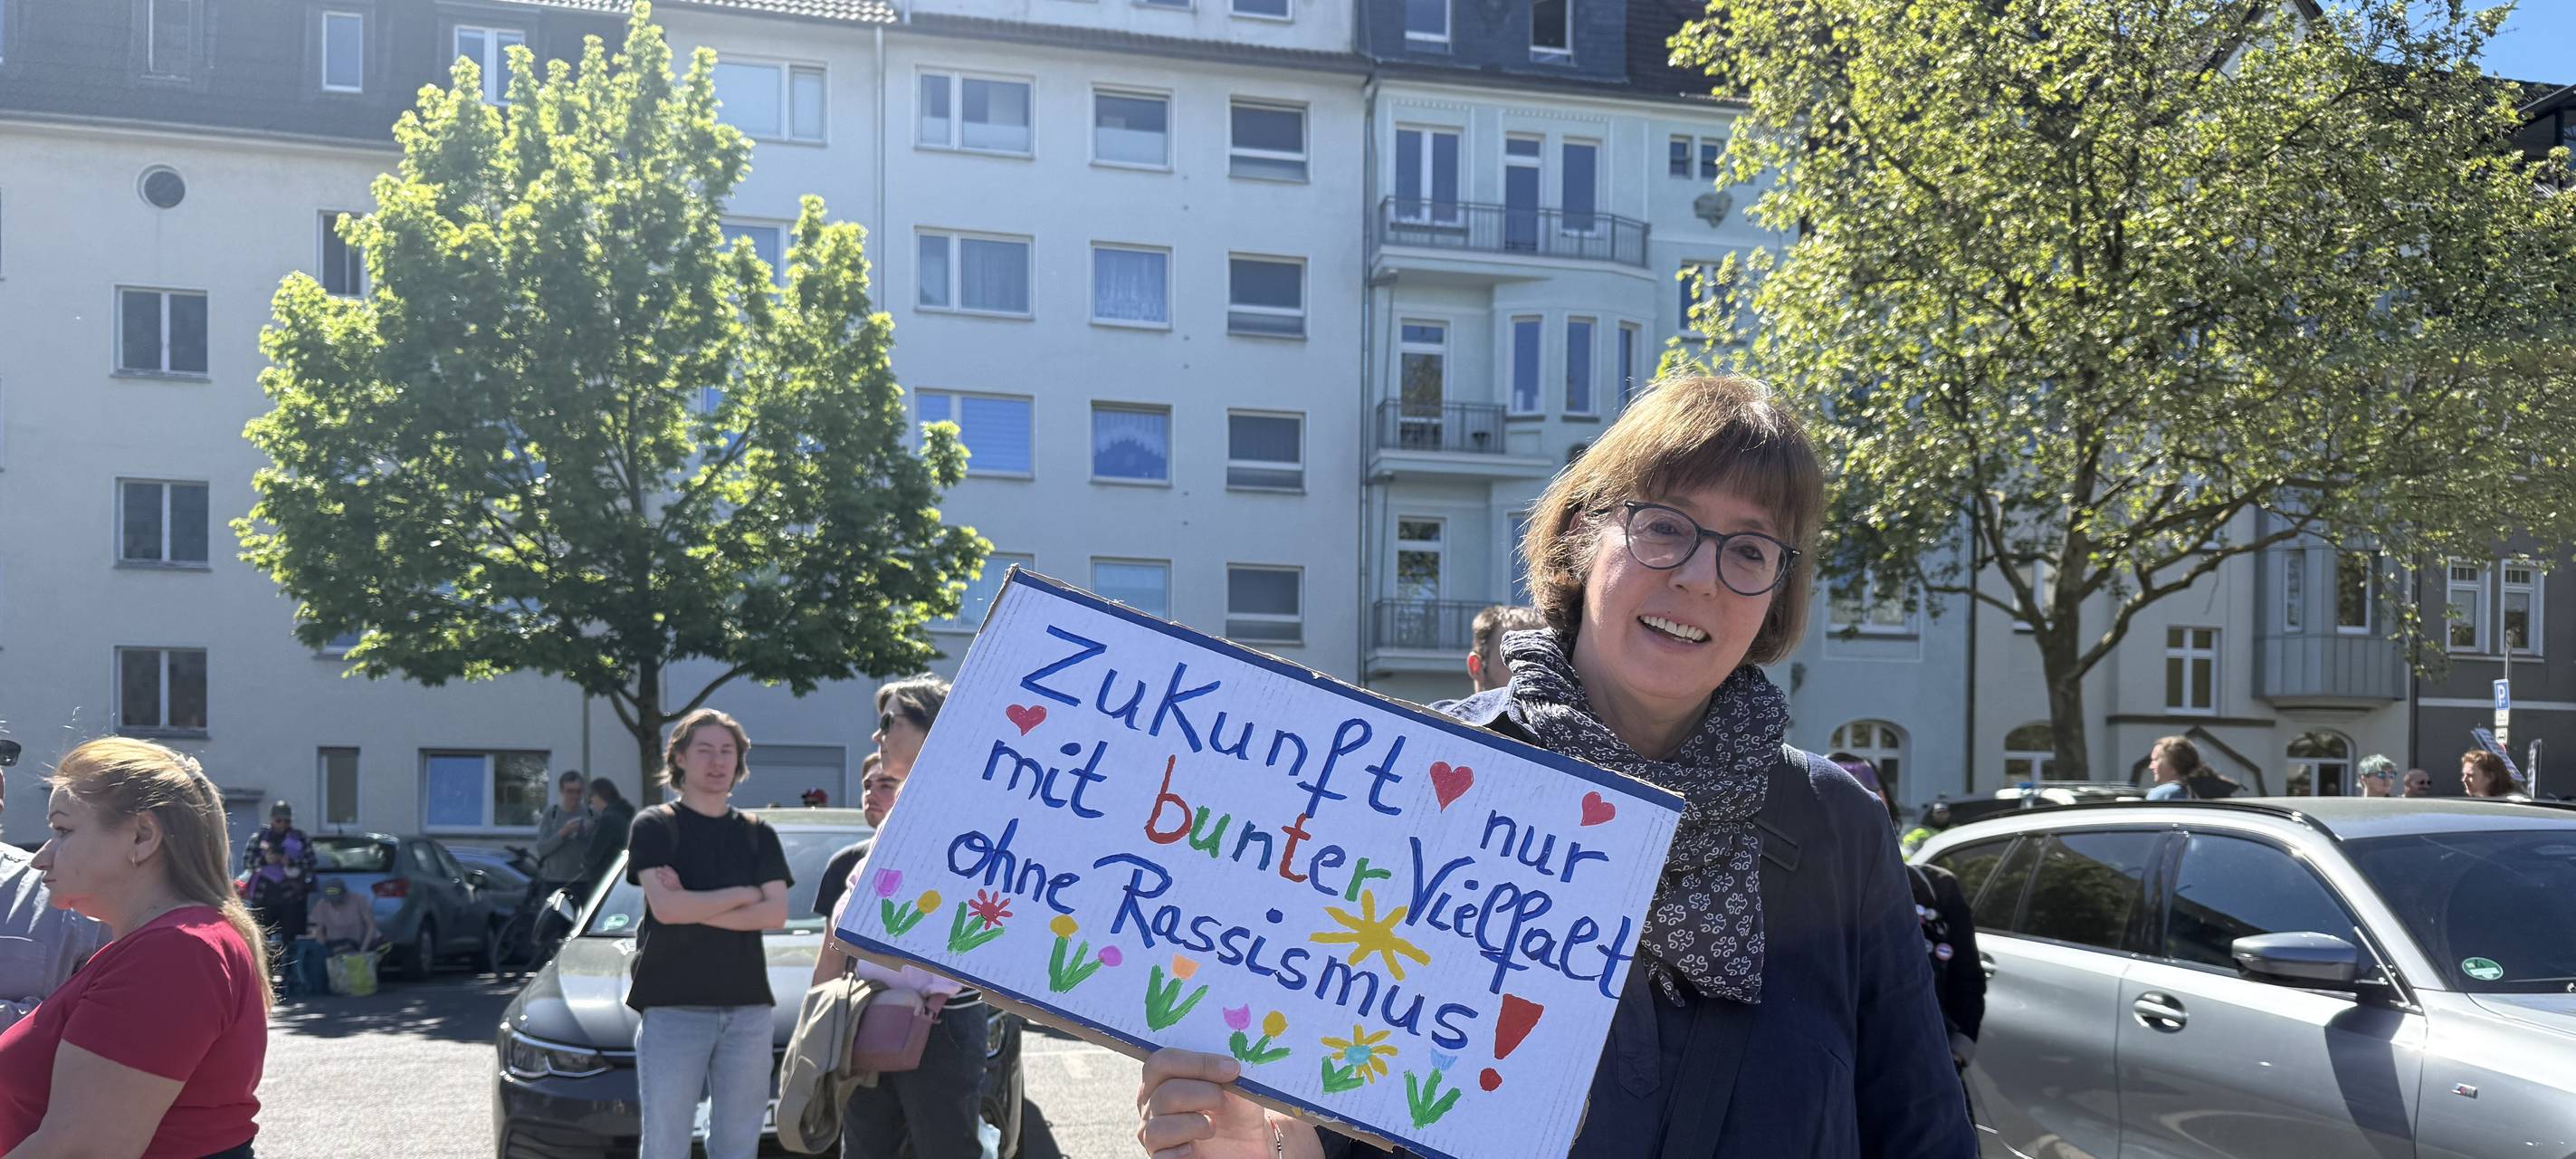 Zukunft nur
mit bunter Vielfalt
ohne Rassismus!
P